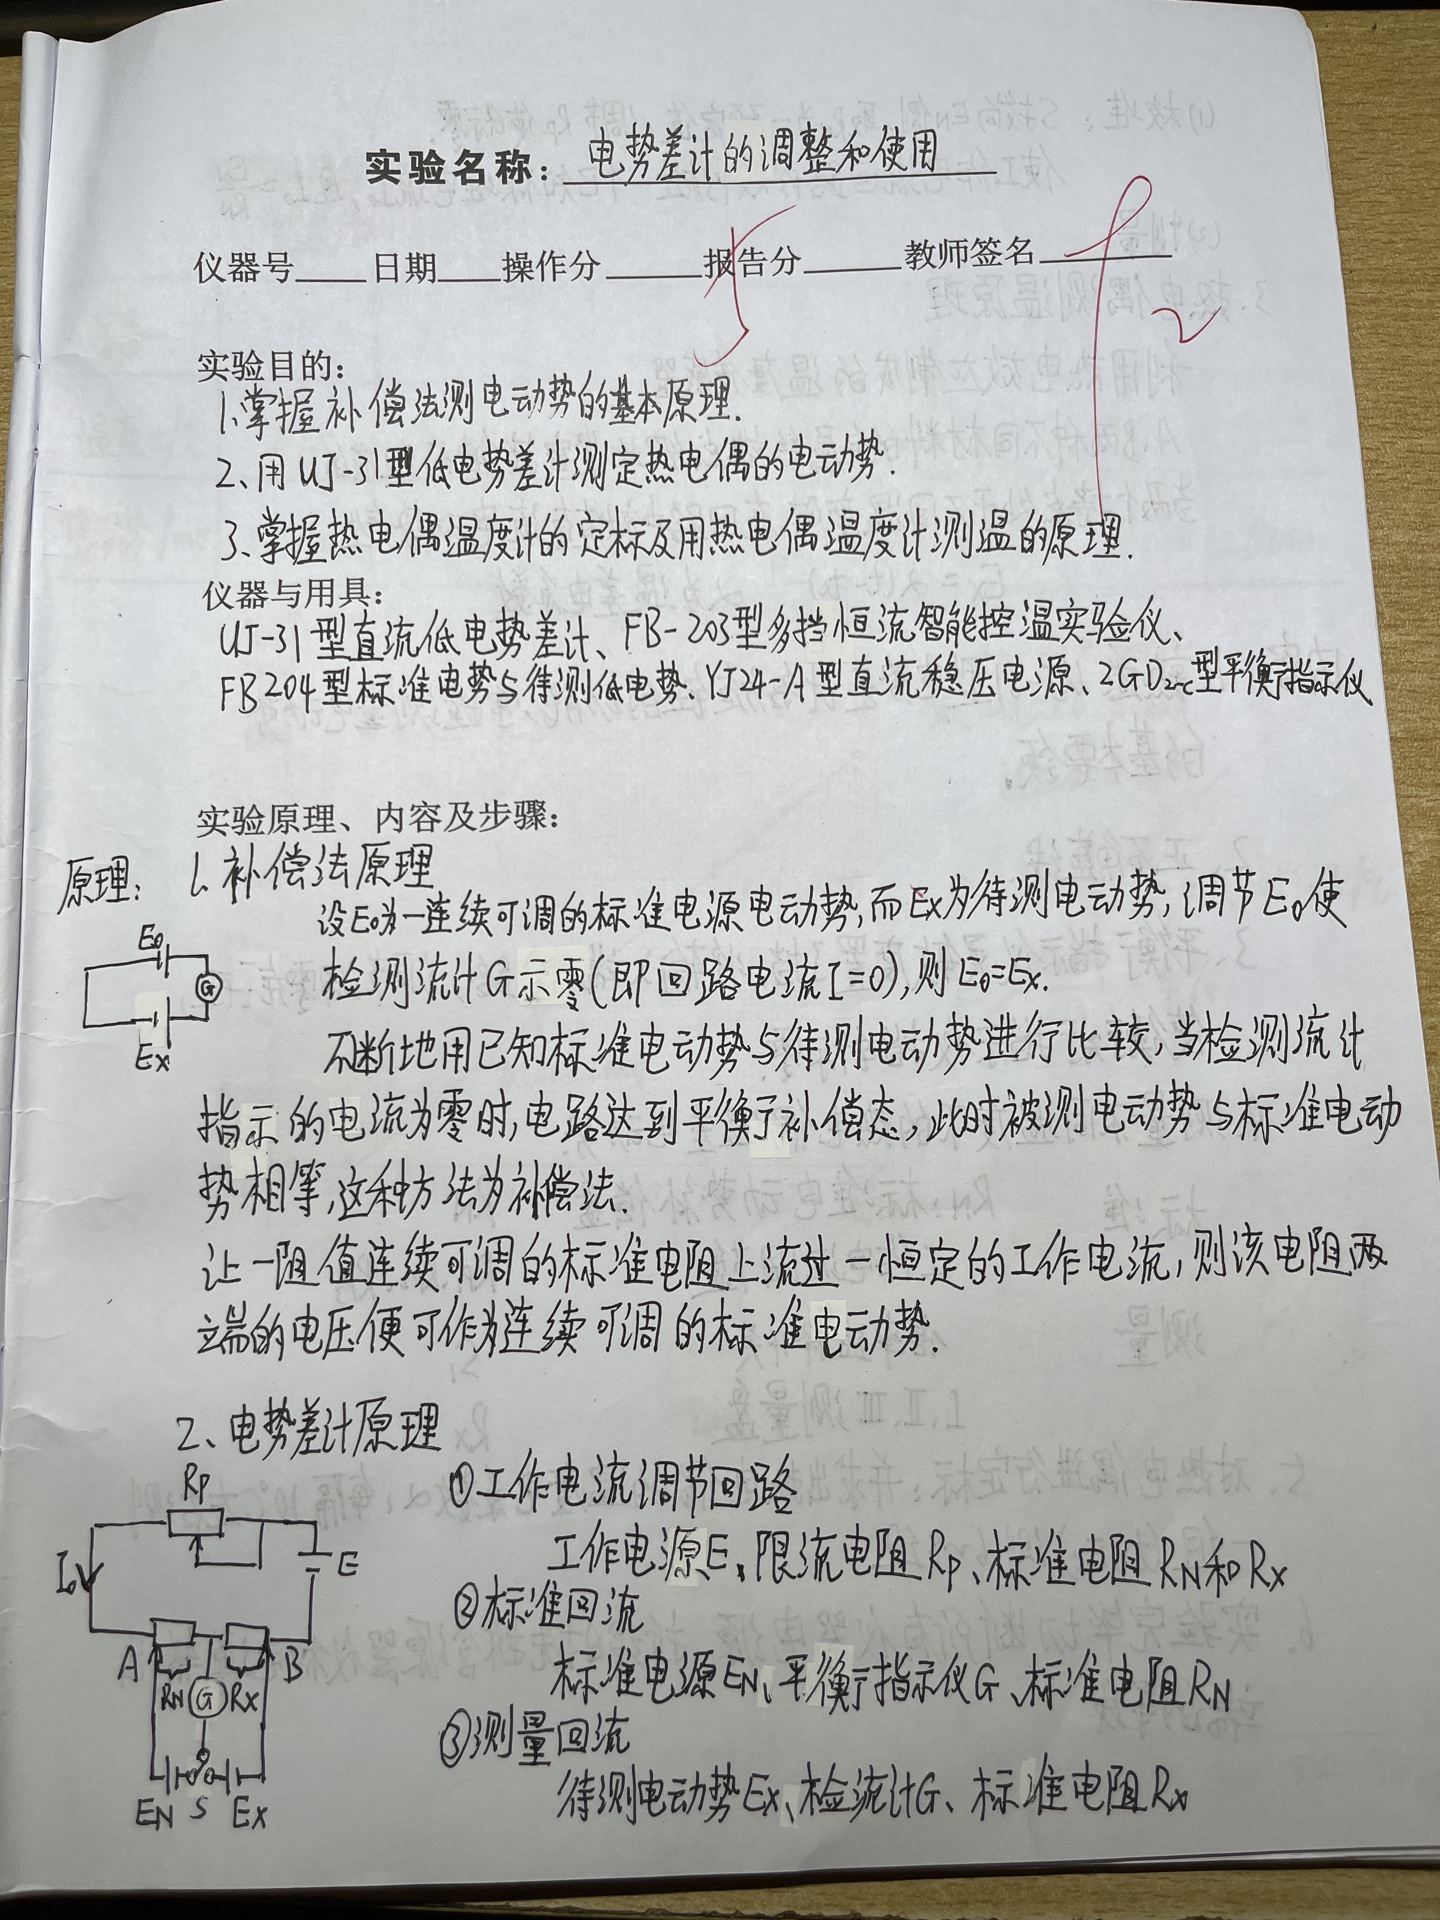 实验名称：电势差计的调整和使用
仪器号 日期 操作分 报告分 教师签名
5
实验目的：
1、掌握补偿法测电动势的基本原理.
2、用UJ-31型低电势差计测定热电偶的电动势.
3、掌握热电偶温度计的定标及用热电偶温度计测温的原理.
仪器与用具：
UJ-31型直流低电势差计、FB-203型多挡恒流智能控温实验仪、
FB204型标准电势与待测低电势、YJ24-A型直流稳压电源、2GD2-C型平衡指示仪
实验原理、内容及步骤：
原理：1、补偿法原理
设E0为一连续可调的标准电源电动势，而Ex为待测电动势，调节E0使
检测流计G示零(即回路电流I=0)，则E0=Ex.
E0
G
Ex
不断地用已知标准电动势与待测电动势进行比较，当检测流计
指示的电流为零时，电路达到平衡补偿态，此时被测电动势与标准电动
势相等，这种方法为补偿法.
让一阻值连续可调的标准电阻上流过一恒定的工作电流，则该电阻两
端的电压便可作为连续可调的标准电动势.
2、电势差计原理
Rp
I0
E
A
B
RN G Rx
EN S Ex
①工作电流调节回路
工作电源E、限流电阻Rp、标准电阻RN和Rx
②标准回流
标准电源EN、平衡指示仪G、标准电阻RN
③测量回流
待测电动势Ex、检流计G、标准电阻Rx